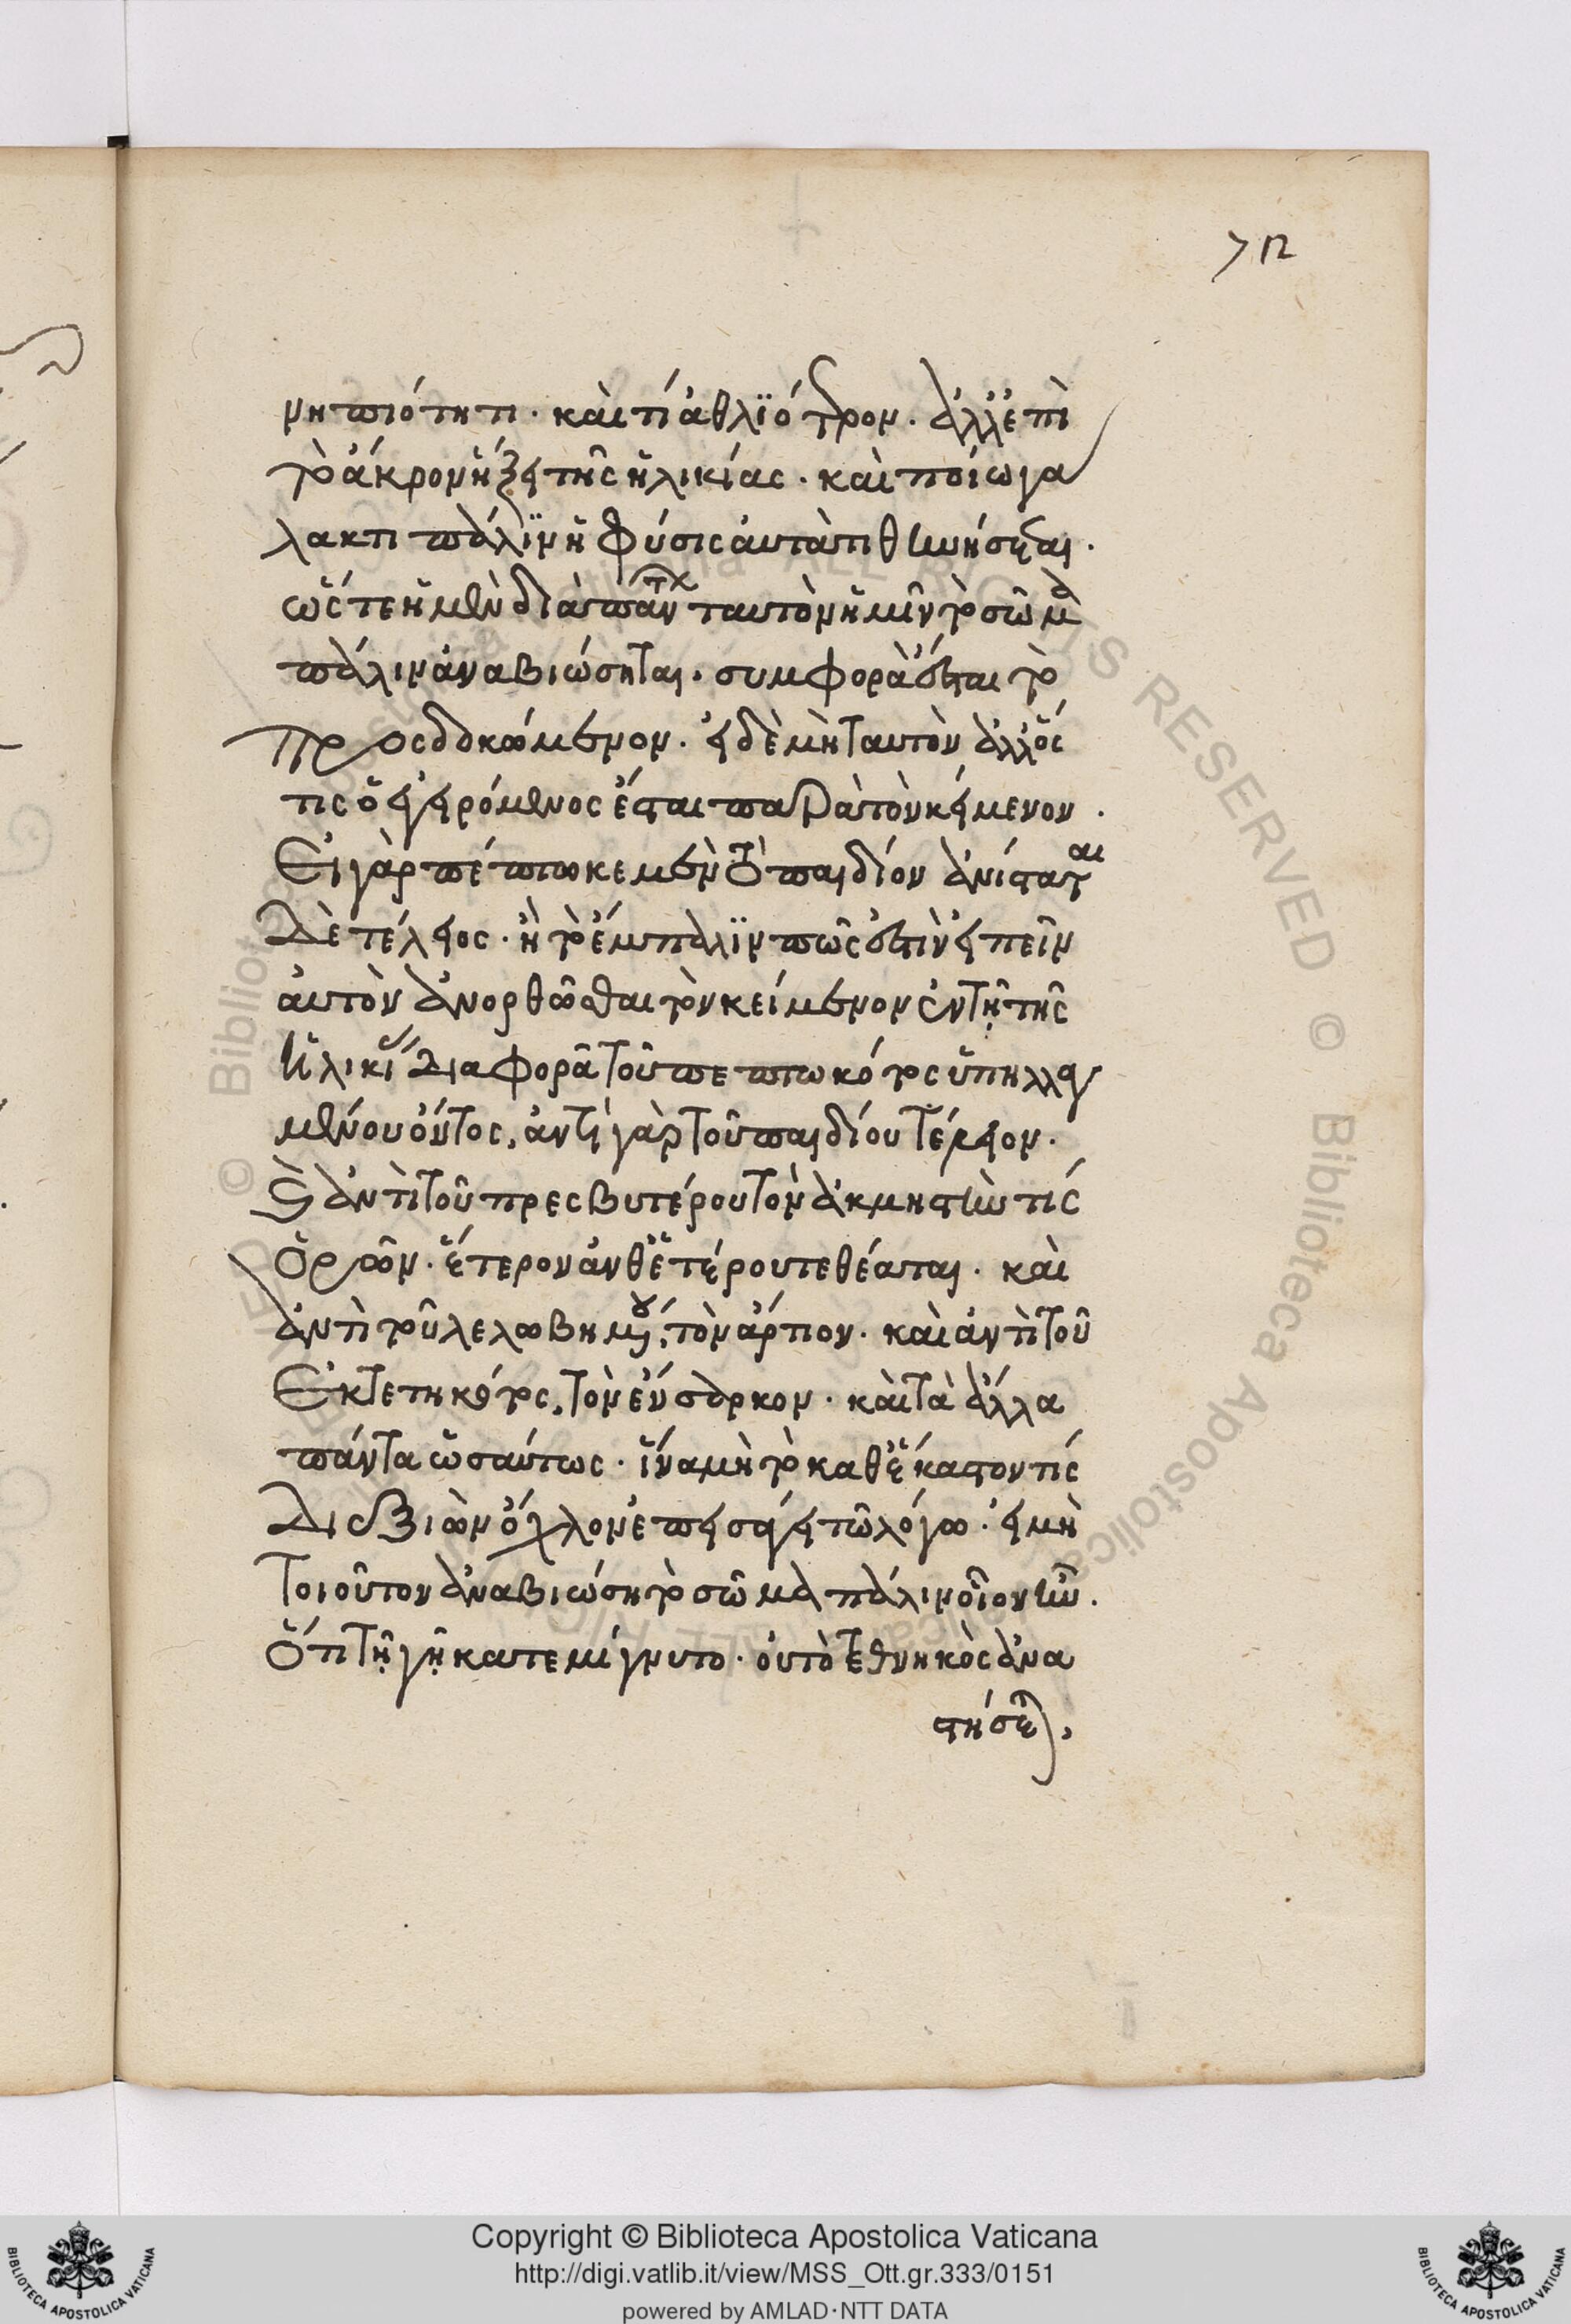 712
νηπιότητι. καὶ τί ἀθλιότερον. ἀλλ' ἐπὶ
τὸ ἄκρον ἥξει τῆς ἡλικίας. καὶ ποίω γά
λακτι πάλιν ἡ φύσις αὐτὰ τιθηνήσεται.
ὥςτε ἢ μὲν διὰ παν ταυτὸν ἡμῖν τὸ σῶμα
πάλιν ἀναβιώσηται. συμφορὰ ἔσται τὸ
προςδοκώμενον. εἰ δὲ μὴ ταυτὸν ἄλλος
τις ὁ ἐγειρόμενος ἔσται παρὰ τὸν κείμενον.
Εἰ γὰρ πέπτωκε μὲν τὸ παιδίον ἀνίσταται
δὲ τέλειος. ἢ τὸ ἔμπαλιν πῶς ἐστὶν εἰπεῖν
αὐτὸν ἀνορθῶσθαι τὸν κείμενον ἐν τῇ τῆς
ἡλικίας διαφορᾶ τοῦ πεπτωκότος ὑπηλλαγ
μένου ὄντος, ἀντὶ γὰρ τοῦ παιδίου τέλειον.
καὶ ἀντὶ τοῦ πρεσβυτέρου τὸν ἀκμηστὴν τίς
ὁρῶν. ἕτερον ἀνθ' ἑτέρου τεθέαται. καὶ
ἀντὶ τοῦ λελωβημένου, τὸν ἄρτιον. καὶ ἀντὶ τοῦ
Ἐκτετηκότος, τὸν ἔνσαρκον. καὶ τὰ ἄλλα
πάντα ὡσαύτως. ἵνα μὴ τὸ καθ' ἕκαστόν τίς
διεξιὼν ὄχλον ἐπεισάγει τῶ λόγω. εἰ μὴ
τοιοῦτον ἀναβιώση τὸ σῶμα πάλιν οἷον ἦν.
Ὅτι τῇ γῇ κατεμίγνυτο. οὐ τὸ τεθνηκὸς ἀνα
στήσεται,
Copyright © Biblioteca Apostolica Vaticana
http://digi.vatlib.it/view/MSS_Ott.gr.333/0151
powered by AMLAD·NTT DATA